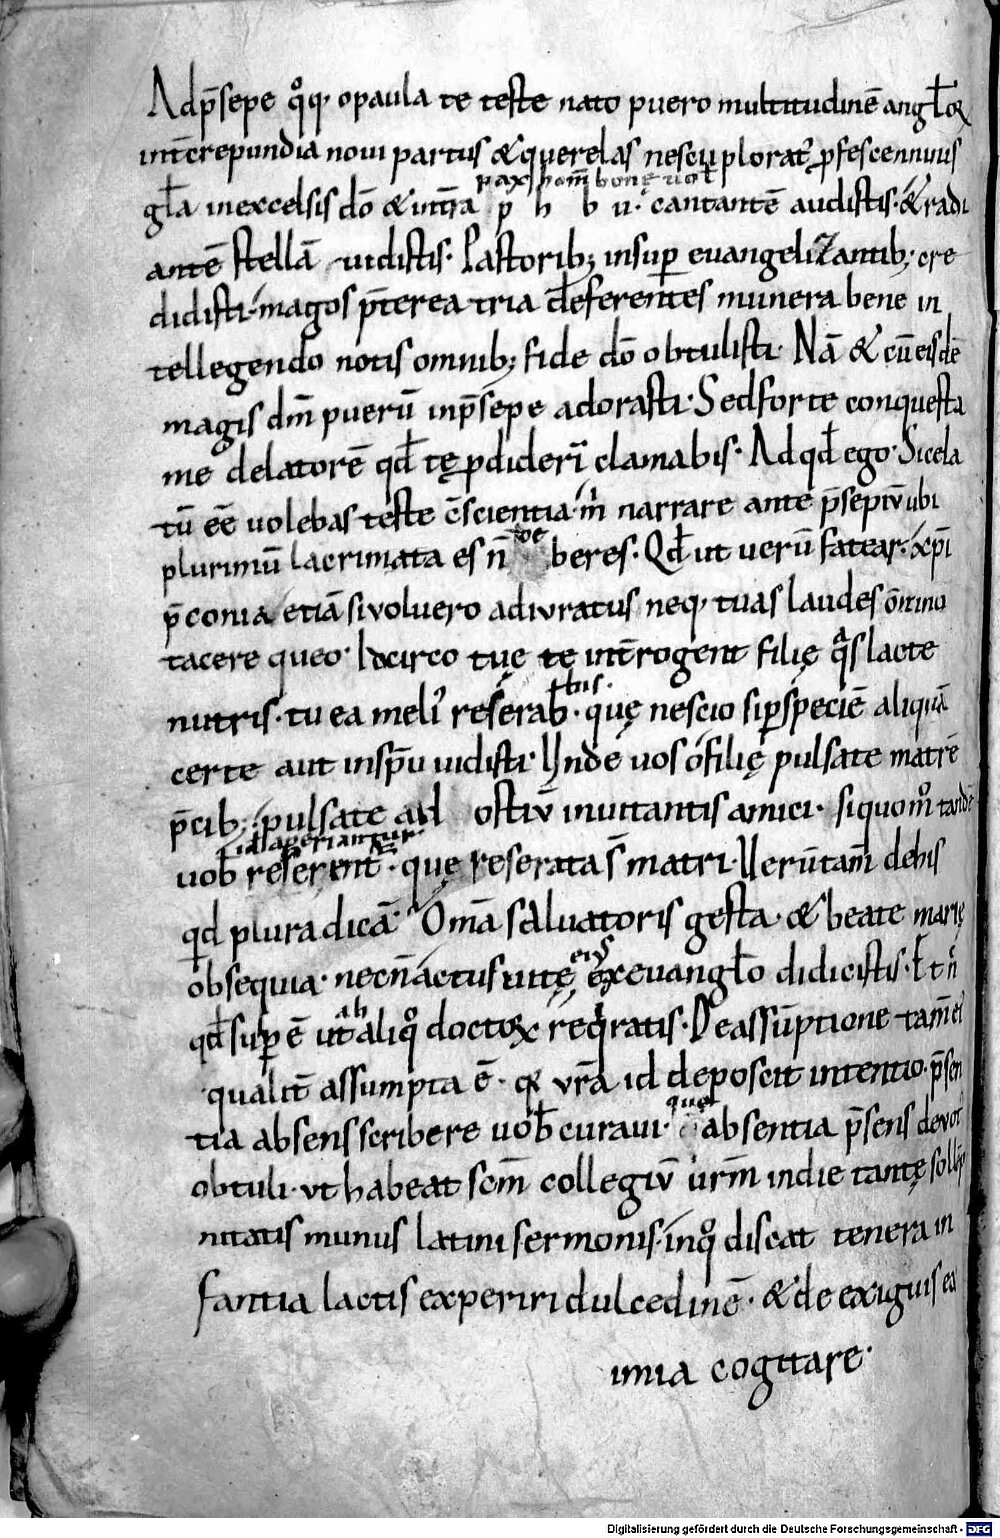 Adp̄sepe q̊q; opaula te teste nato puero multitudinē angl̄oꝝ
int̄crepundia noui partus & querelas nescii ploratꝰ pfescennuus
pax hom̄ bonę uol̄
gl̄a inexcelsis dō & int̄ra p h b u. cantantē audistis. & radi
antē stellā uidistis. Pastorib; insup̄ euangelizantib; cre
didisti. magos p̄terea tria deferentes munera bene in
tellegendo notis omnib; fide dō obtulisti. Nā & cū eisdē
magis dn̄m puerū inp̄sepe adorasti. Sed forte conquesta
me delatorē qd̄ tę pdider̄i clamabis. Adqd̄ ego. Si cela
tū eē uolebas teste c̄scientia. m̄ narrare ante p̄sepiū ubi
plurimū lacrimata es n̄ de
beres. Qd̄ ut uerū fatear. xp̄i
p̄conia etiā si voluero adiuratus neq; tuas laudes om̄ino
tacere queo. Idcirco tuę te int̄rogent filię q̄s lacte
bis.
nutris. tu ea meliꝰ reserab. quę nescio si p̄ speciē aliquā
certe aut insp̄u uidisti. Unde uos o filię pulsate matrē
p̄cib; pulsate ad ostiū inuitantis amici. si quom̊ tand̄
id aperiantur
uob̄ reserent. quę reserata s̄ matri. Uerūtam̄ debis
qd̄ plura dicā. Om̄a saluatoris gesta. & beate marię
eiꝰ
obsequia. necn̄ actus uitę ex euangl̄o didicistis. Et n̄
ab
qd̄ sup̄ ē ut aliq̊ doctoꝝ reqratis. De assūptione tam̄ eiꝰ
qualit̄ assumpta ē. qa vr̄a id deposcit intentio. p̄sen
que
tia absens scribere uob̄ curaui. absentia p̄sens deuot
obtuli. ut habeat scm̄ collegiū ur̄m in die tantę sollēp
nitatis munus latini sermonis. inq̊ discat tenera in
fantia lactis experiri dulcedinē. & de exiguis ex
imia cogitare.
Digitalisierung gefördert durch die Deutsche Forschungsgemeinschaft - DFG